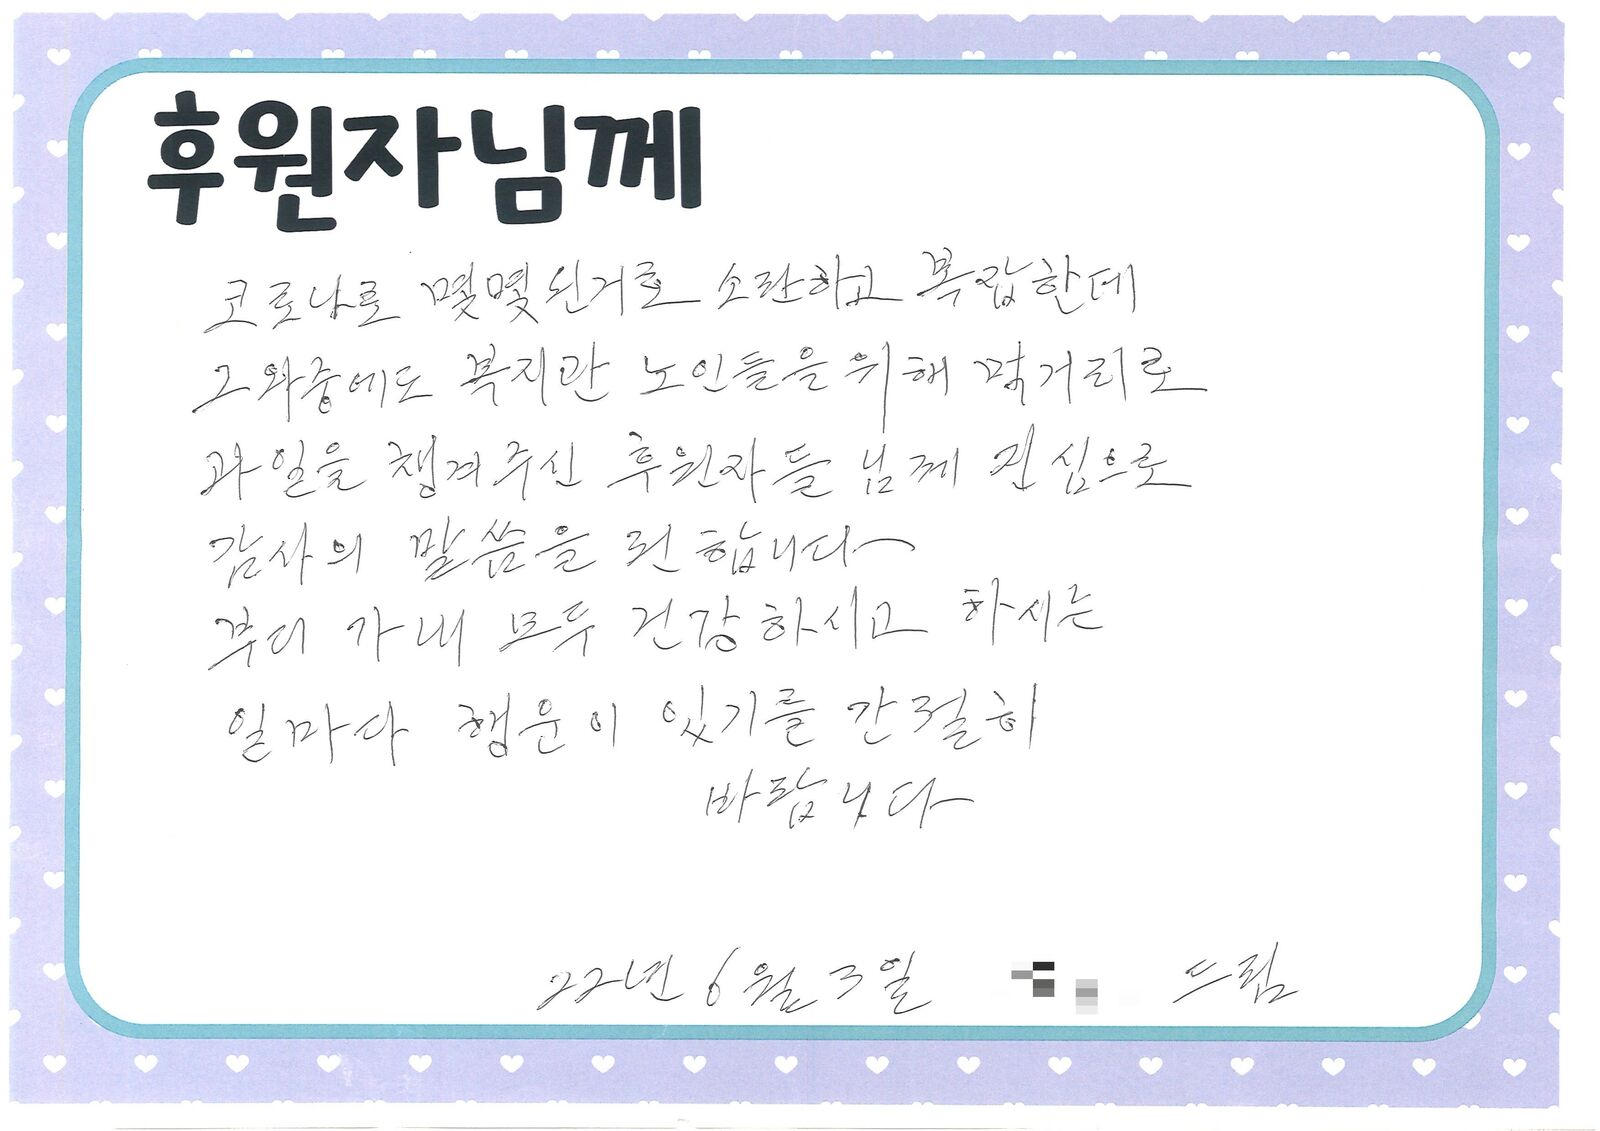 후원자님께
코로나로 몇몇 소란하고 복잡한데
그 와중에도 복지관 노인들을 위해 먹거리로
과일을 챙겨주신 후원자들 님께 진심으로
감사의 말씀을 전합니다
부디 가내 모두 건강하시고 하시는
일마다 행운이 있기를 간절히
바랍니다
22년 6월 3일 드림